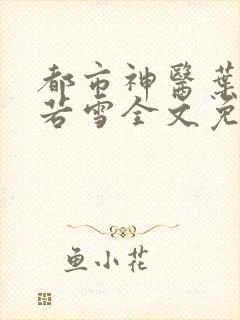 都市神醫葉
若雪全文免
鱼小花